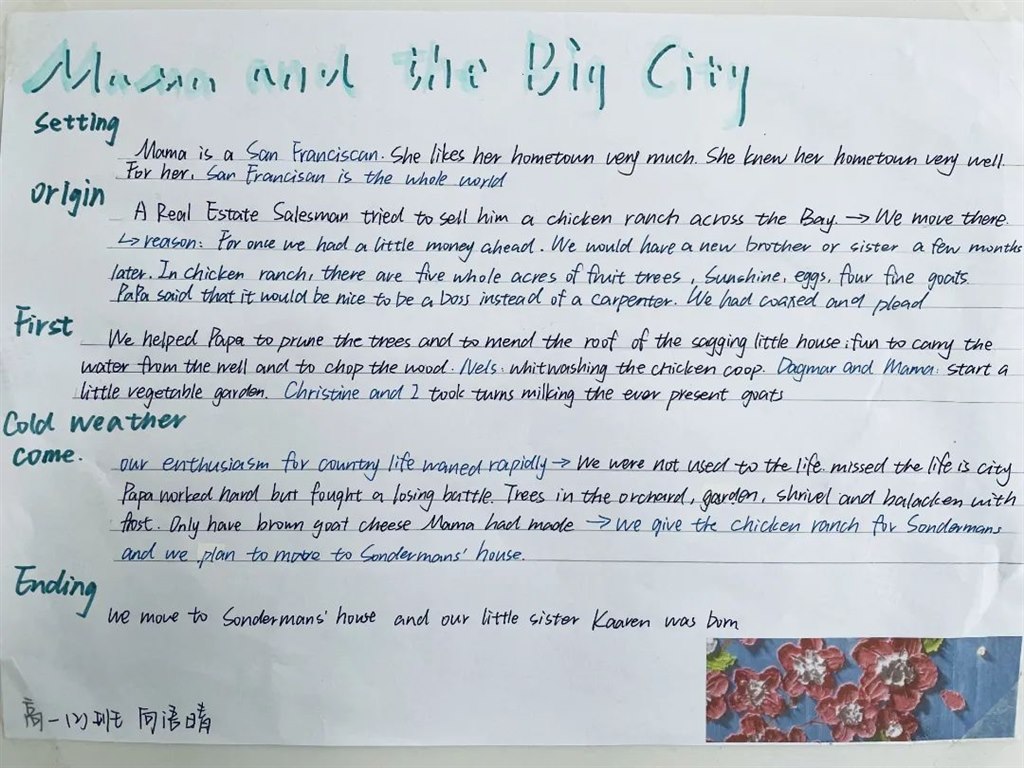 Mama and the Big City
Setting
Mama is a San Franciscan. She likes her hometown very much. She knew her hometown very well.
For her, San Francisan is the whole world
Origin
A Real Estate Salesman tried to sell him a chicken ranch across the Bay. → We move there.
↳ reason: For once we had a little money ahead. We would have a new brother or sister a few months
later. In chicken ranch, there are five whole acres of fruit trees, Sunshine, eggs, four fine goats.
PaPa said that it would be nice to be a boss instead of a carpenter. We had coaxed and plead
First
We helped Papa to prune the trees and to mend the roof of the sagging little house; fun to carry the
water from the well and to chop the wood. Nels: whitwashing the chicken coop. Dagmar and Mama: start a
little vegetable garden. Christine and I took turns milking the ever present goats
Cold weather
come.
our enthusiasm for country life waned rapidly → We were not used to the life. missed the life is city
Papa worked hard but fought a losing battle. Trees in the orchard, garden, shrivel and balacken with
frost. Only have brown goat cheese Mama had made → we give the chicken ranch for Sondermans
and we plan to move to Sondermans' house.
Ending
We move to Sondermans' house and our little sister Kaaren was born
高一(2)班 同语晴